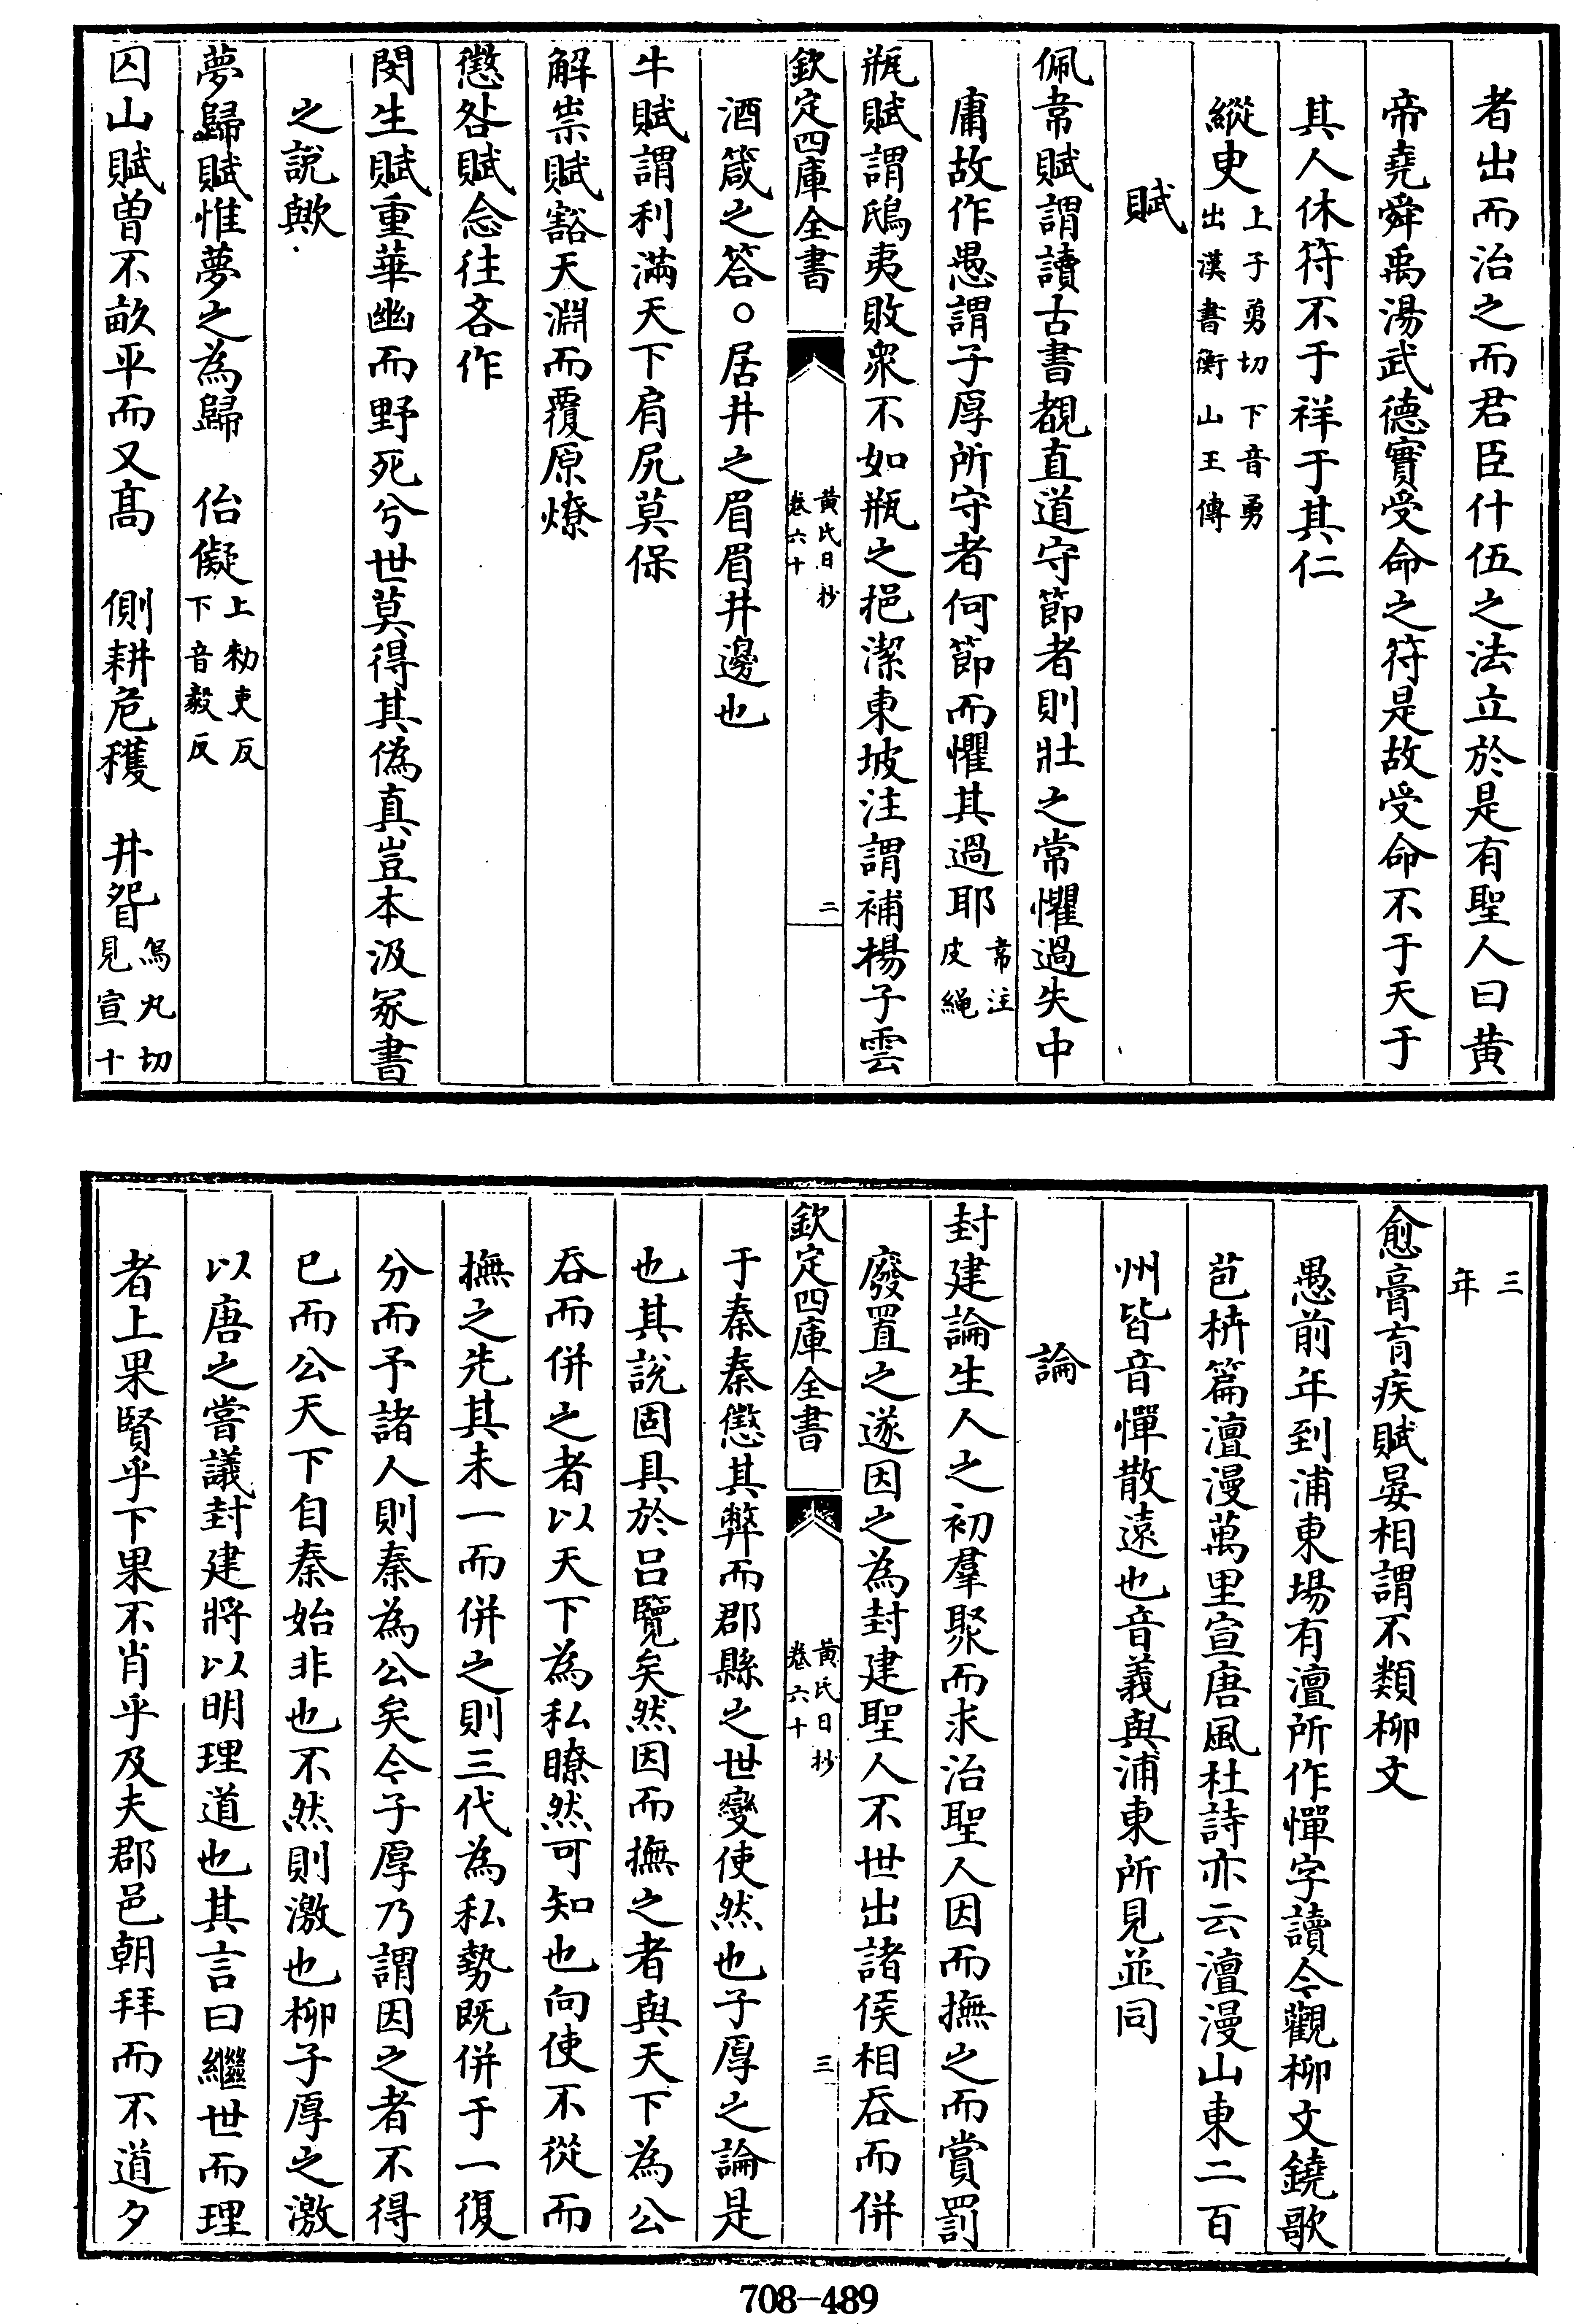 者出而治之而君臣什伍之法立於是有聖人曰黄
帝堯舜禹湯武德實受命之符是故受命不于天于
其人休符不于祥于其仁
縱臾上子勇切下音勇出漢書衡山王傳
賦
佩韋賦謂讀古書覩直道守節者則壯之常懼過失中
庸故作愚謂子厚所守者何節而懼其過耶韋注皮繩
瓶賦謂鴟夷敗衆不如瓶之挹潔東坡注謂補楊子雲
欽定四庫全書
黄氏日抄
卷六十
二
酒箴之答○居井之眉眉井邊也
牛賦謂利滿天下肩尻莫保
解祟賦豁天淵而覆原燎
懲咎賦念往吝作
閔生賦重華幽而野死兮世莫得其偽真豈本汲冢書
之說歟
夢歸賦惟夢之為歸 佁儗上勑吏反下音毅反
囚山賦曽不畝平而又髙 側耕危穫 井眢烏丸切見宣十
三年
愈膏肓疾賦晏相謂不類柳文
愚前年到浦東場有澶所作憚字讀今觀柳文鐃歌
苞枿篇澶漫萬里宣唐風杜詩亦云澶漫山東二百
州皆音憚散遠也音義與浦東所見並同
論
封建論生人之初羣聚而求治聖人因而撫之而賞罰
廢置之遂因之為封建聖人不世出諸侯相吞而併
欽定四庫全書
黄氏日抄
卷六十
三
于秦秦懲其弊而郡縣之世變使然也子厚之論是
也其說固具於呂覽矣然因而撫之者與天下為公
吞而併之者以天下為私瞭然可知也向使不從而
撫之先其未一而併之則三代為私勢既併于一復
分而予諸人則秦為公矣今子厚乃謂因之者不得
已而公天下自秦始非也不然則激也柳子厚之激
以唐之嘗議封建將以明理道也其言曰繼世而理
者上果賢乎下果不肖乎及夫郡邑朝拜而不道夕
708-489